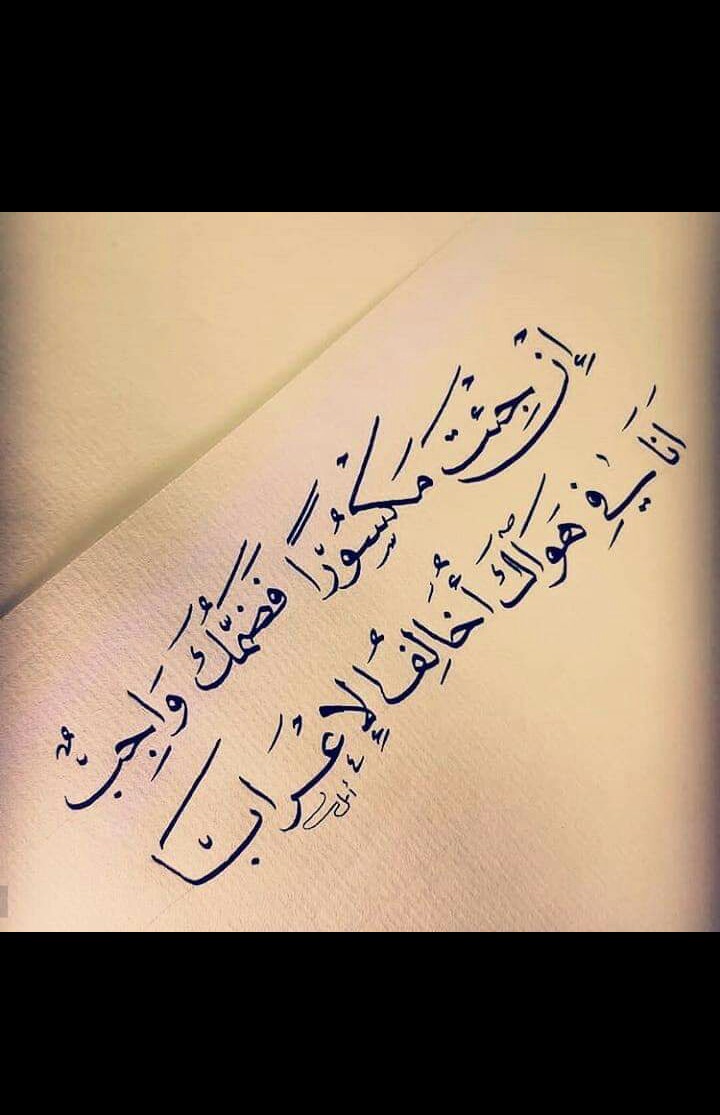 إِنْ جِئْتَ مَكْسُورًا فَضَمُّكَ وَاجِبٌ
أَنَا فِي هَوَاكَ أُخَالِفُ الإِعْرَابَا